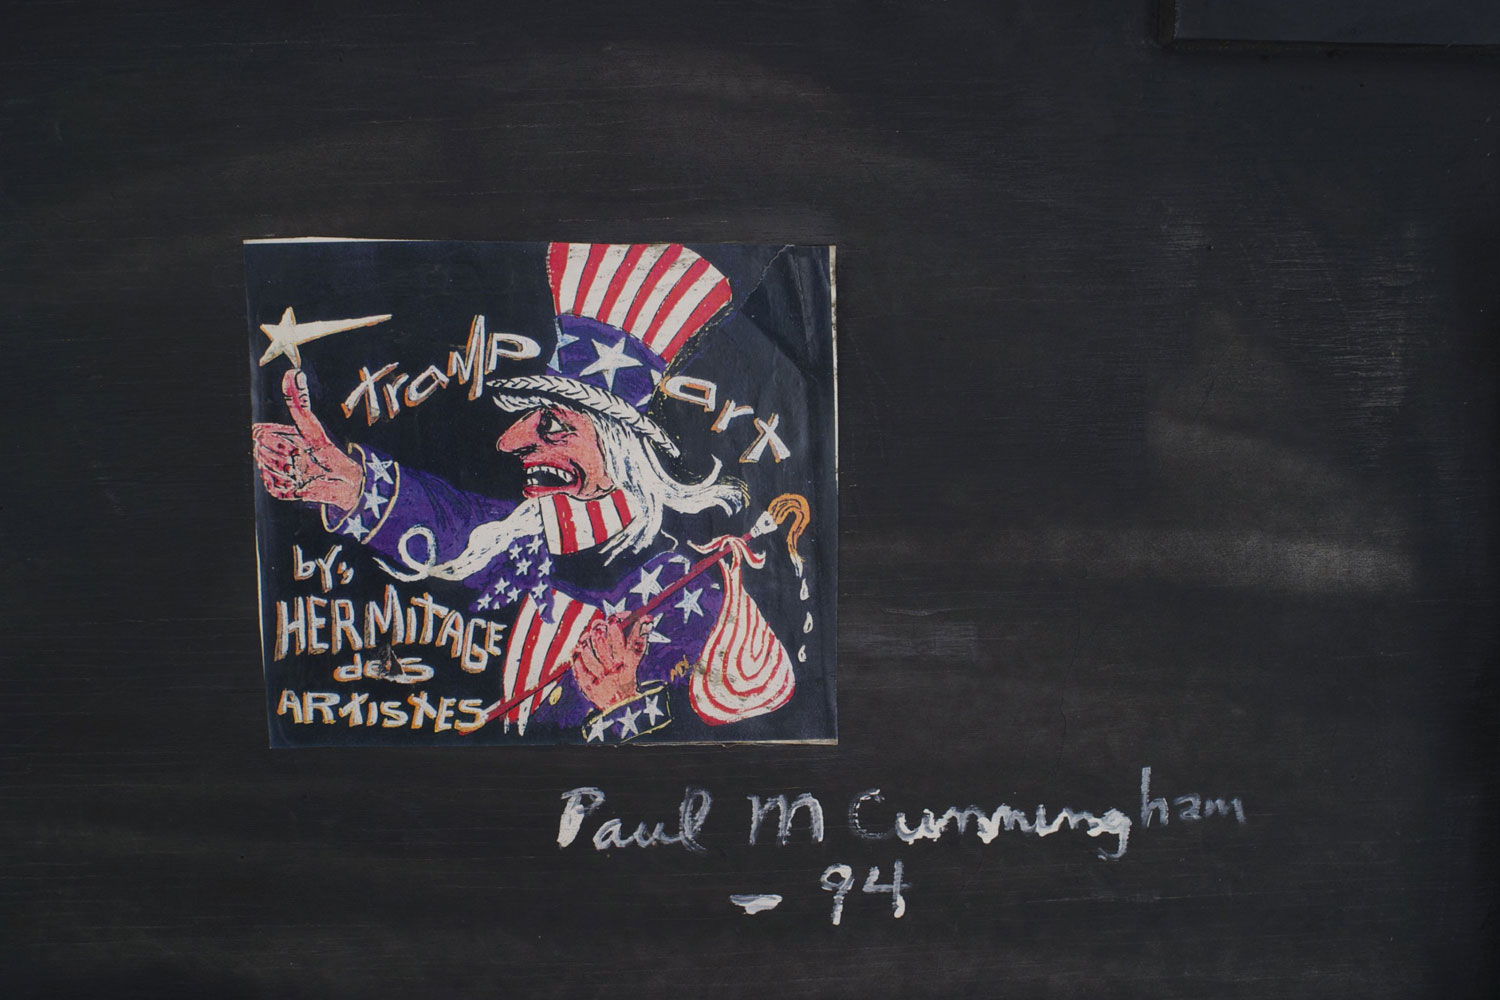 tramp art
by,
HERMITAGE
des
ARTISTES
Paul M Cunningham
- 94